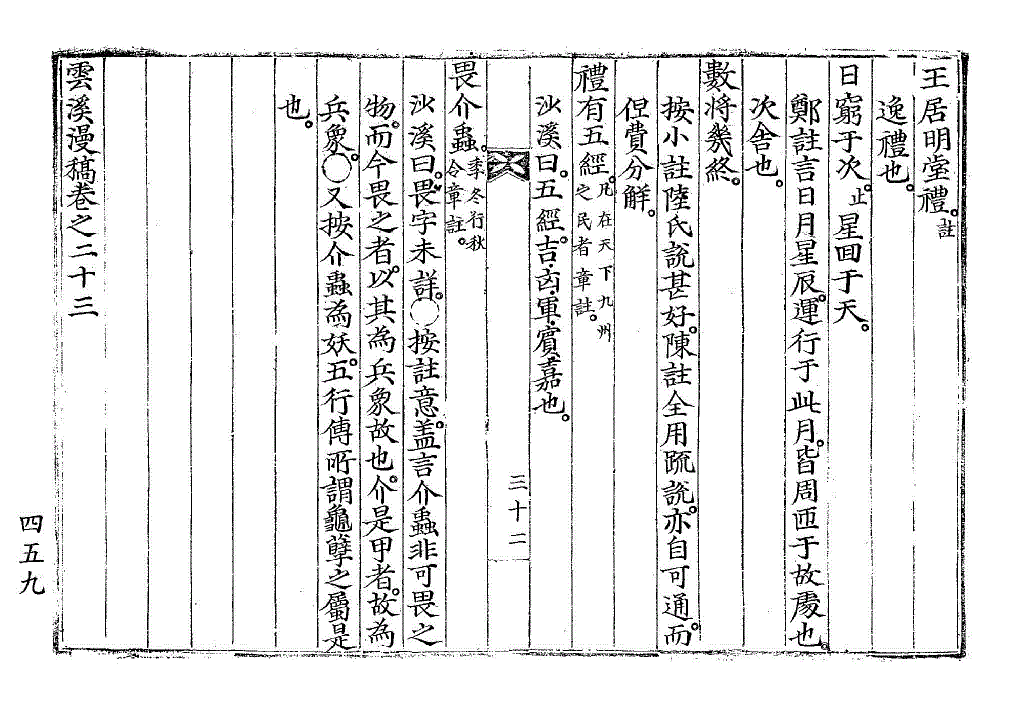 王居明堂禮。註
逸禮也。
日窮于次。止星回于天。
鄭註言日月星辰。運行于此月。皆周匝于故處也。
次舍也。
數將幾終。
按小註陸氏說甚好。陳註全用疏說。亦自可通。而
但費分解。
禮有五經。凡在天下九州
之民者章註。
沙溪曰。五經。吉·凶·軍·賓·嘉也。
三十二
畏介蟲。季冬行秋
令章註。
沙溪曰。畏字未詳。○按註意。盖言介蟲非可畏之
物。而今畏之者。以其為兵象故也。介是甲者。故為
兵象。○又按介蟲為妖。五行傳所謂龜孽之屬是
也。
雲溪漫稿卷之二十三
四五九